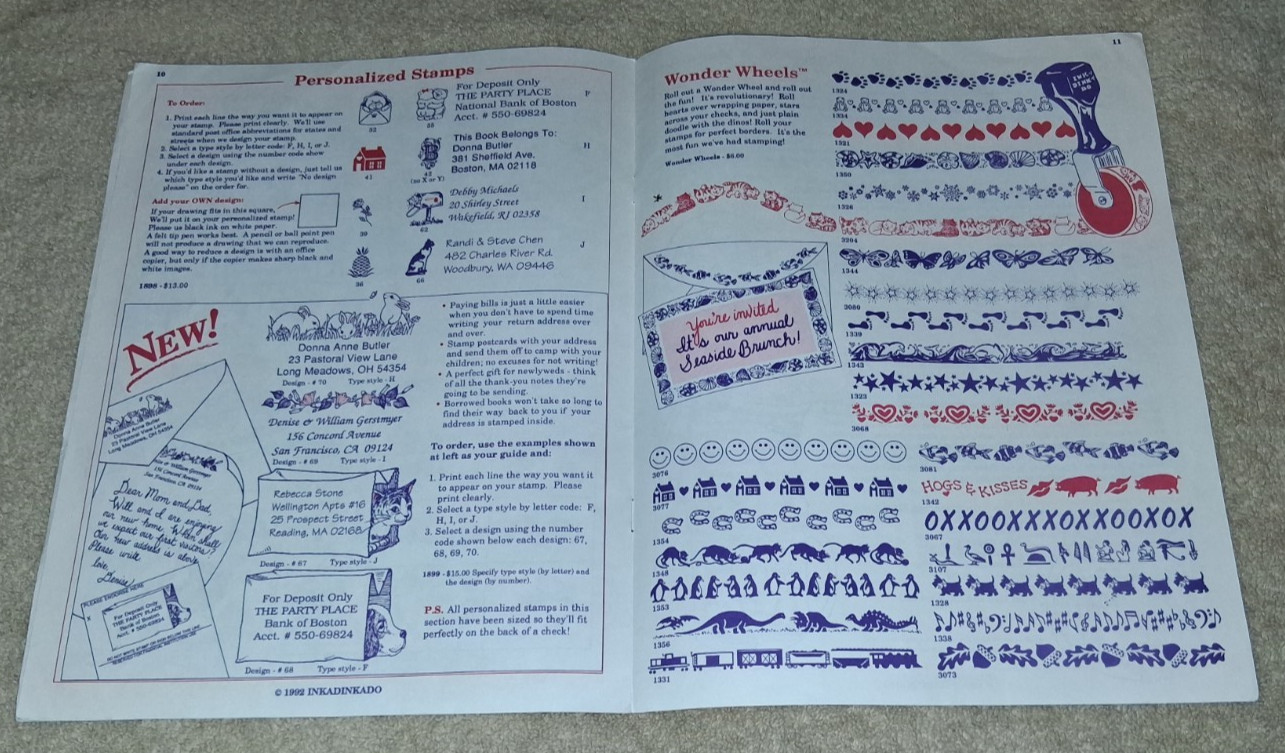 10
Personalized Stamps
To Order:
1. Print each line the way you want it to appear on
your stamp. Please print clearly. We'll use
standard post office abbreviations for states and
streets when we design your stamp.
2. Select a type style by letter code: F, H, I, or J.
3. Select a design using the number code show
under each design.
4. If you'd like a stamp without a design, just tell us
which type style you'd like and write "No design
please" on the order for.
Add your OWN design:
If your drawing fits in this square,
We'll put it on your personalized stamp!
Please us black ink on white paper.
A felt tip pen works best. A pencil or ball point pen
will not produce a drawing that we can reproduce.
A good way to reduce a design is with an office
copier, but only if the copier makes sharp black and
white images.
1898 - $13.00
41
39
(no X or Y)
62
For Deposit Only
THE PARTY PLACE
National Bank of Boston
Acct. # 550-69824
F
This Book Belongs To:
Donna Butler
381 Sheffield Ave.
Boston, MA 02118
H
Debby Michaels
20 Shirley Street
Wakefield, RI 02358
I
Randi & Steve Chen
482 Charles River Rd.
Woodbury, WA 09446
J
NEW!
Donna Anne Butler
23 Pastoral View Lane
Long Meadows, OH 54354
Design - # 70 Type style - H
Denise & William Gerstmyer
156 Concord Avenue
San Francisco, CA 09124
Design - # 69 Type style - I
Rebecca Stone
Wellington Apts #16
25 Prospect Street
Reading, MA 02168
Design - # 67 Type style - J
For Deposit Only
THE PARTY PLACE
Bank of Boston
Acct. # 550-69824
Design - # 68 Type style - F
Donna Anne Butler
23 Pastoral View Lane
Long Meadows, OH 54354
Dear Mom and Dad,
Will and I are enjoying
our new home. When shall
we expect our first visitors?
Our new address is above.
Please write
love,
Denise
PLEASE ENDORSE HERE
X
For Deposit Only
THE PARTY PLACE
Bank of Boston
Acct. # 550-69824
• Paying bills is just a little easier
when you don't have to spend time
writing your return address over
and over.
• Stamp postcards with your address
and send them off to camp with your
children; no excuses for not writing!
• A perfect gift for newlyweds - think
of all the thank-you notes they're
going to be sending.
• Borrowed books won't take so long to
find their way back to you if your
address is stamped inside.
To order, use the examples shown
at left as your guide and:
1. Print each line the way you want it
to appear on your stamp. Please
print clearly.
2. Select a type style by letter code: F,
H, I, or J.
3. Select a design using the number
code shown below each design: 67,
68, 69, 70.
1899 - $15.00 Specify type style (by letter) and
the design (by number).
P.S. All personalized stamps in this
section have been sized so they'll fit
perfectly on the back of a check!
© 1992 INKADINKADO
11
Wonder Wheels™
Roll out a Wonder Wheel and roll out
the fun! It's revolutionary! Roll
hearts over wrapping paper, stars
across your checks, and just plain
doodle with the dinos! Roll your
stamps for perfect borders. It's the
most fun we've had stamping!
Wonder Wheels - $8.00
INK-
A-
DINK-
A-
DO
1324
1334
1321
1350
1326
3204
1344
3080
1339
1343
1323
3068
You're invited
It's our annual
Seaside Brunch!
3076
3077
1354
1348
1353
1356
1331
3081
HOGS & KISSES
1342
OXXOOXXXOXXOOXOX
3067
3107
1328
1338
3073